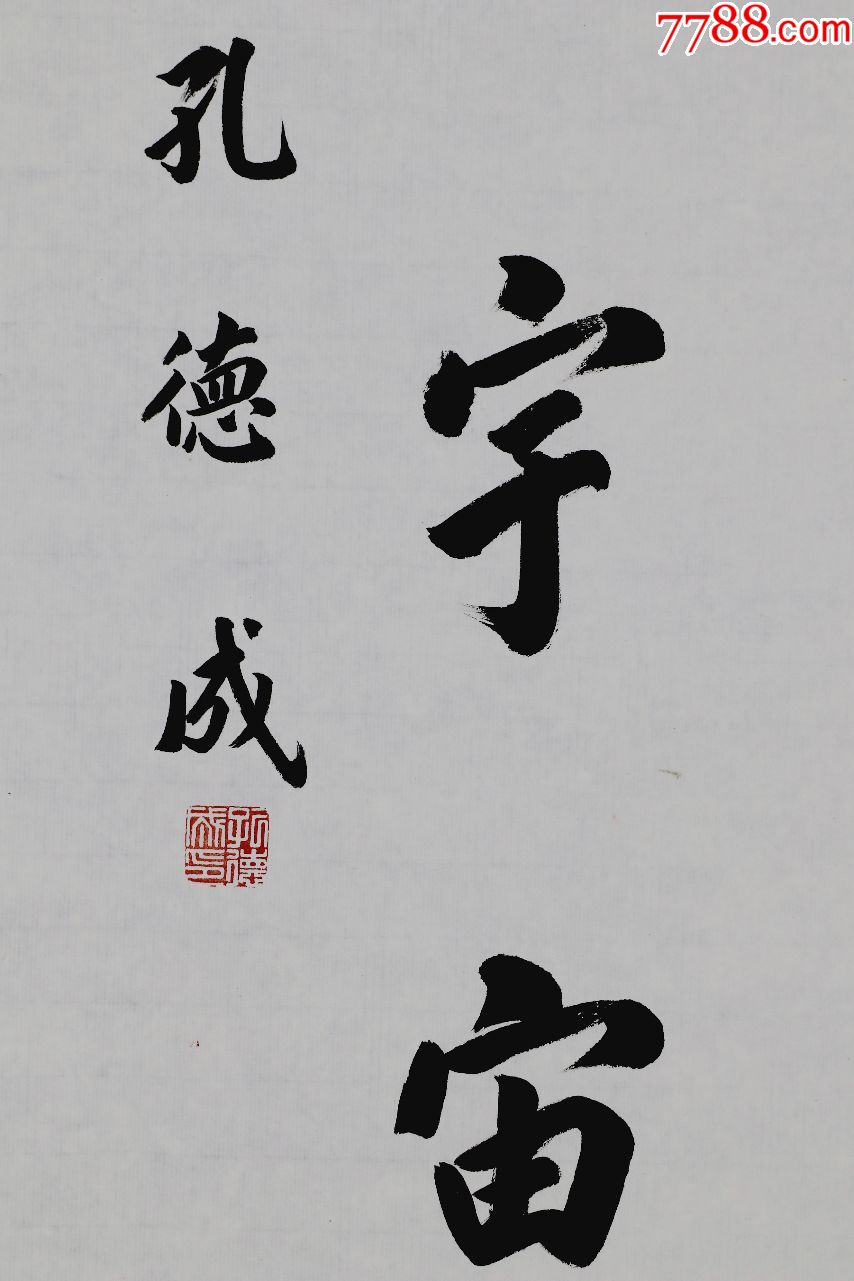 7788.com
宇宙
孔德成
孔德成印